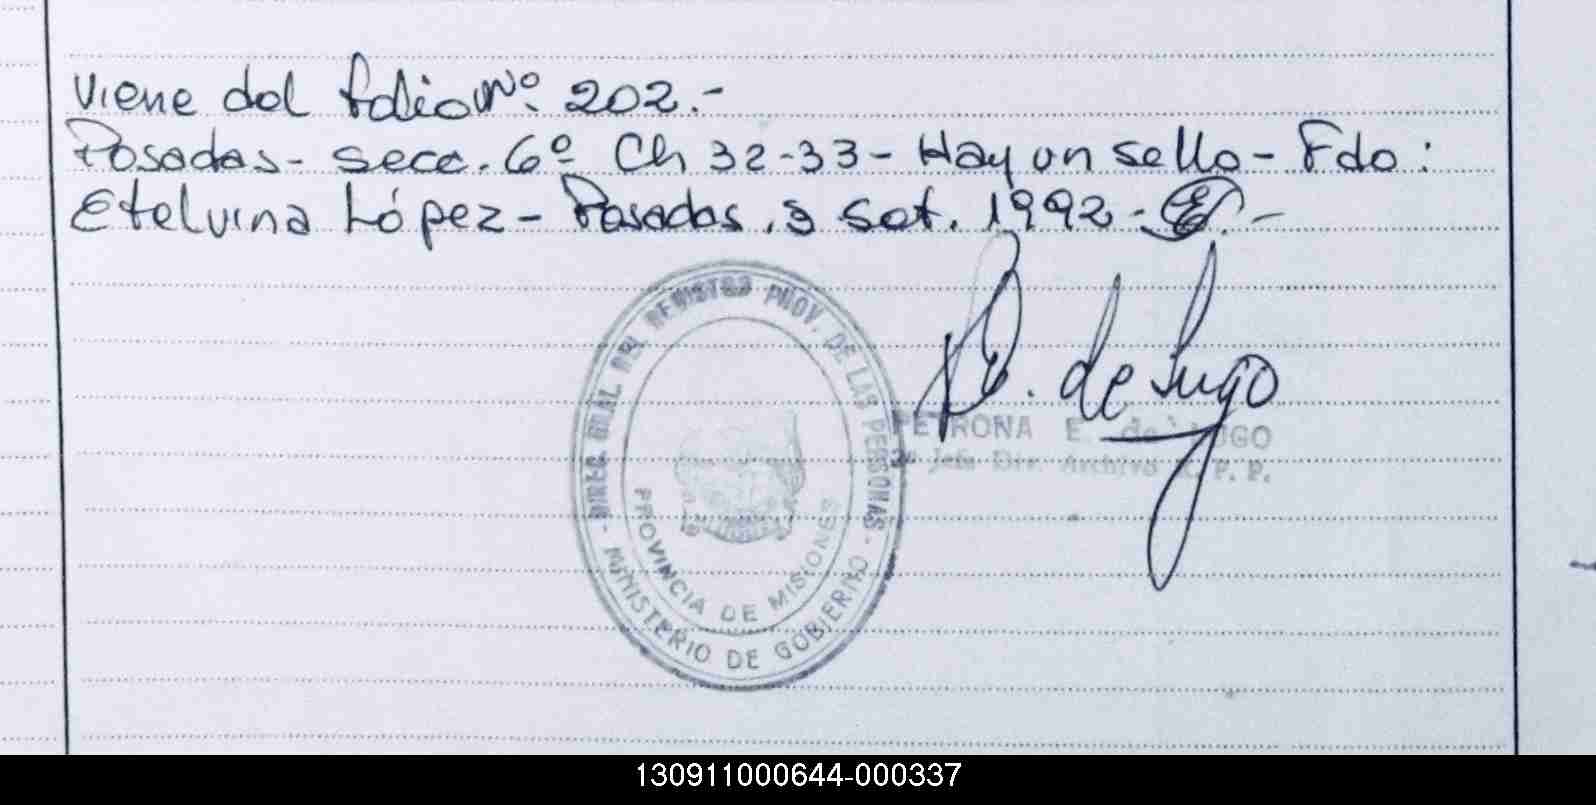 Viene del folio Nº. 202.-
Posadas- secc. 6º Ch 32-33- Hay un sello- Fdo:
Etelvina López- Posadas, 3 set. 1992-
P. de Lugo
PETRONA E. de LUGO
2º Jefe Div. Archivo R. P. P.
- DIREC. GRAL. DEL REGISTRO PROV. DE LAS PERSONAS -
MINISTERIO DE GOBIERNO
PROVINCIA DE MISIONES
130911000644-000337